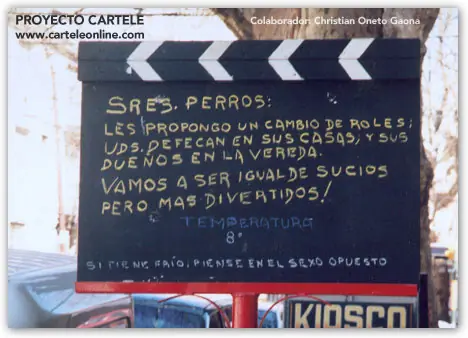 PROYECTO CARTELE
www.carteleonline.com
Colaborador: Christian Oneto Gaona
SRES. PERROS:
LES PROPONGO UN CAMBIO DE ROLES;
UDS. DEFECAN EN SUS CASAS, Y SUS
DUEÑOS EN LA VEREDA.
VAMOS A SER IGUAL DE SUCIOS
PERO MAS DIVERTIDOS!
TEMPERATURA
8°
SI TIENE FRÍO, PIENSE EN EL SEXO OPUESTO
KIOSCO